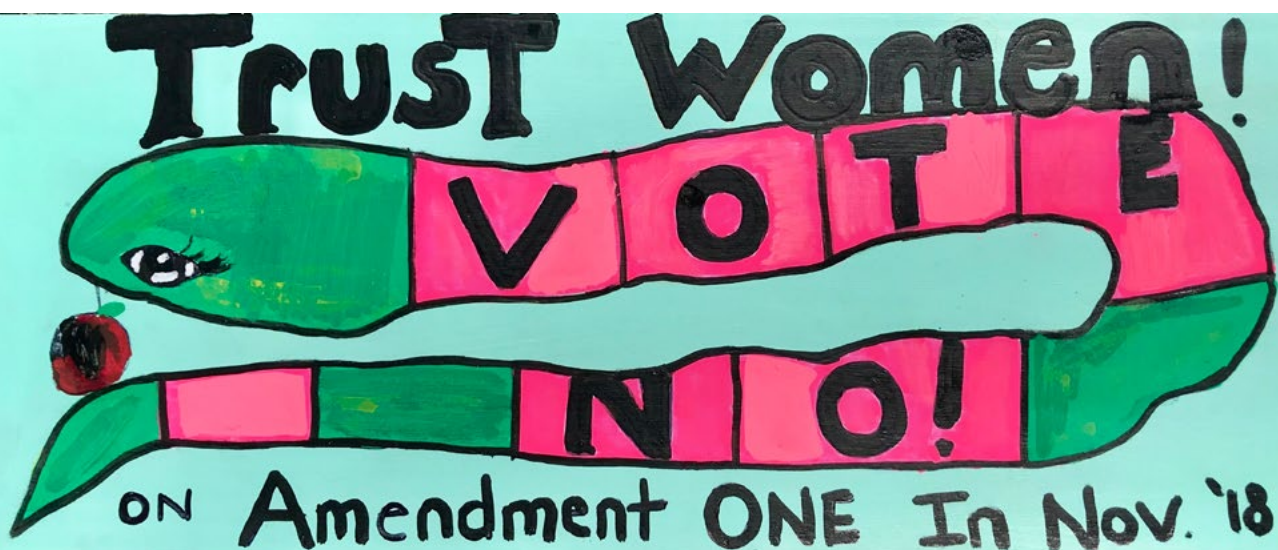 Trust Women!
VOTE
NO!
ON Amendment ONE In Nov. '18